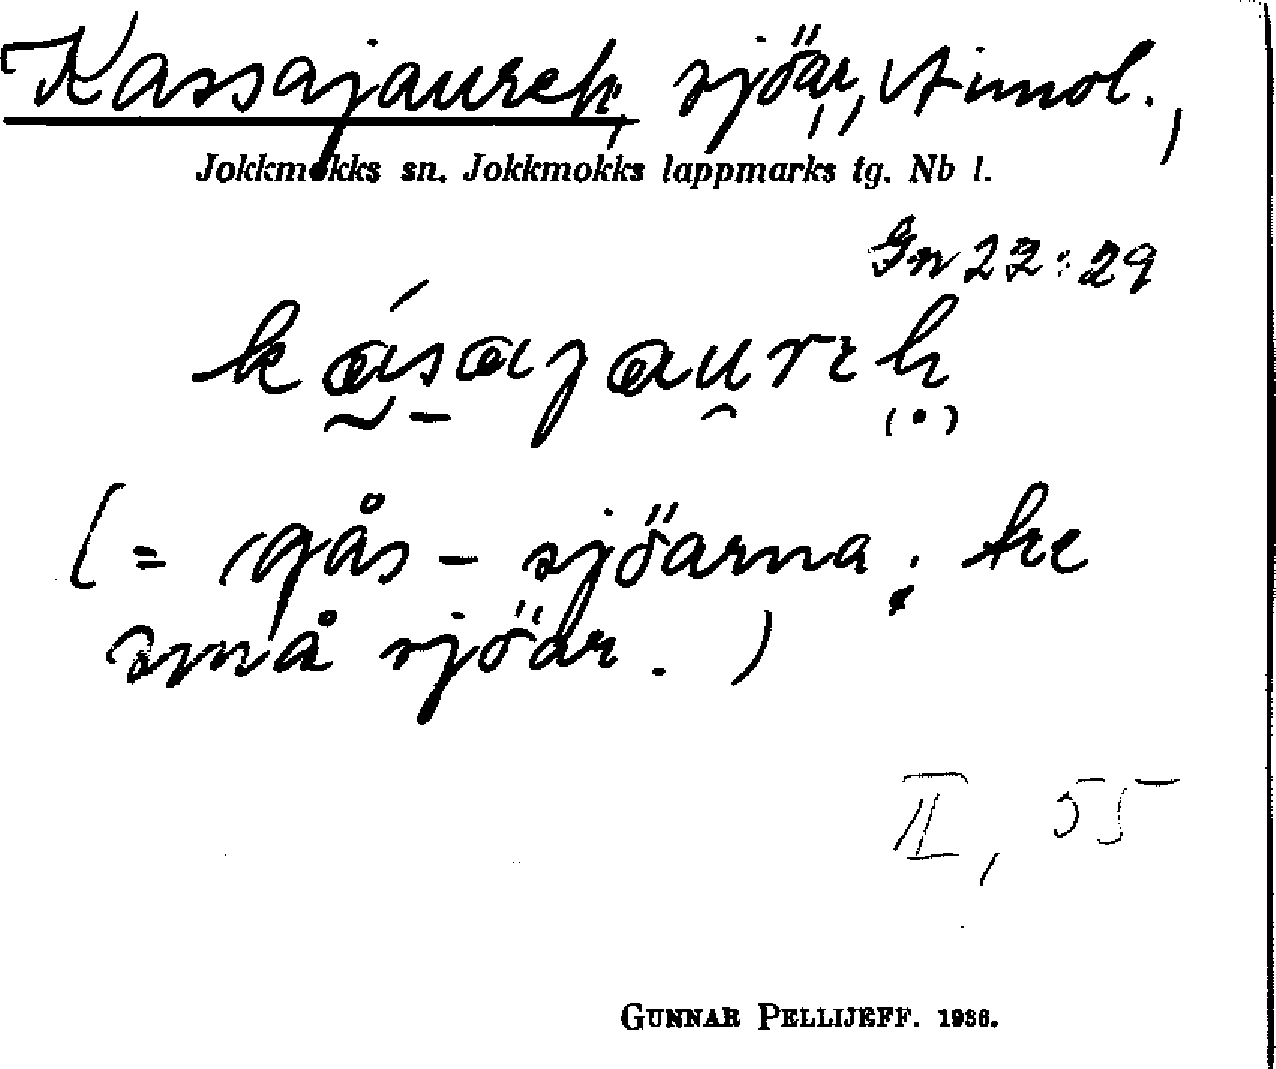 Kassajaureh, sjöar, Aimol.,
Jokkmokks sn. Jokkmokks lappmarks tg. Nb l.
Gn 22:29
kásajaureh
(•)
(= gås-sjöarna; tre
små sjöar.)
II, 55
GUNNAR PELLIJEFF. 1936.